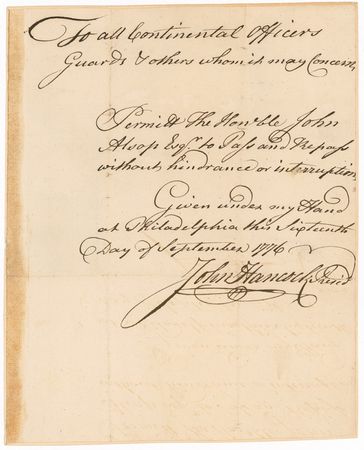 To all Continental Officers
Guards & others whom it may Concern,
Permitt The Honble John
Alsop Esqr to Pass and Repass
without hindrance or interruption,
Given under my Hand
at Philadelphia this Sixteenth
Day of September 1776
John Hancock Presid